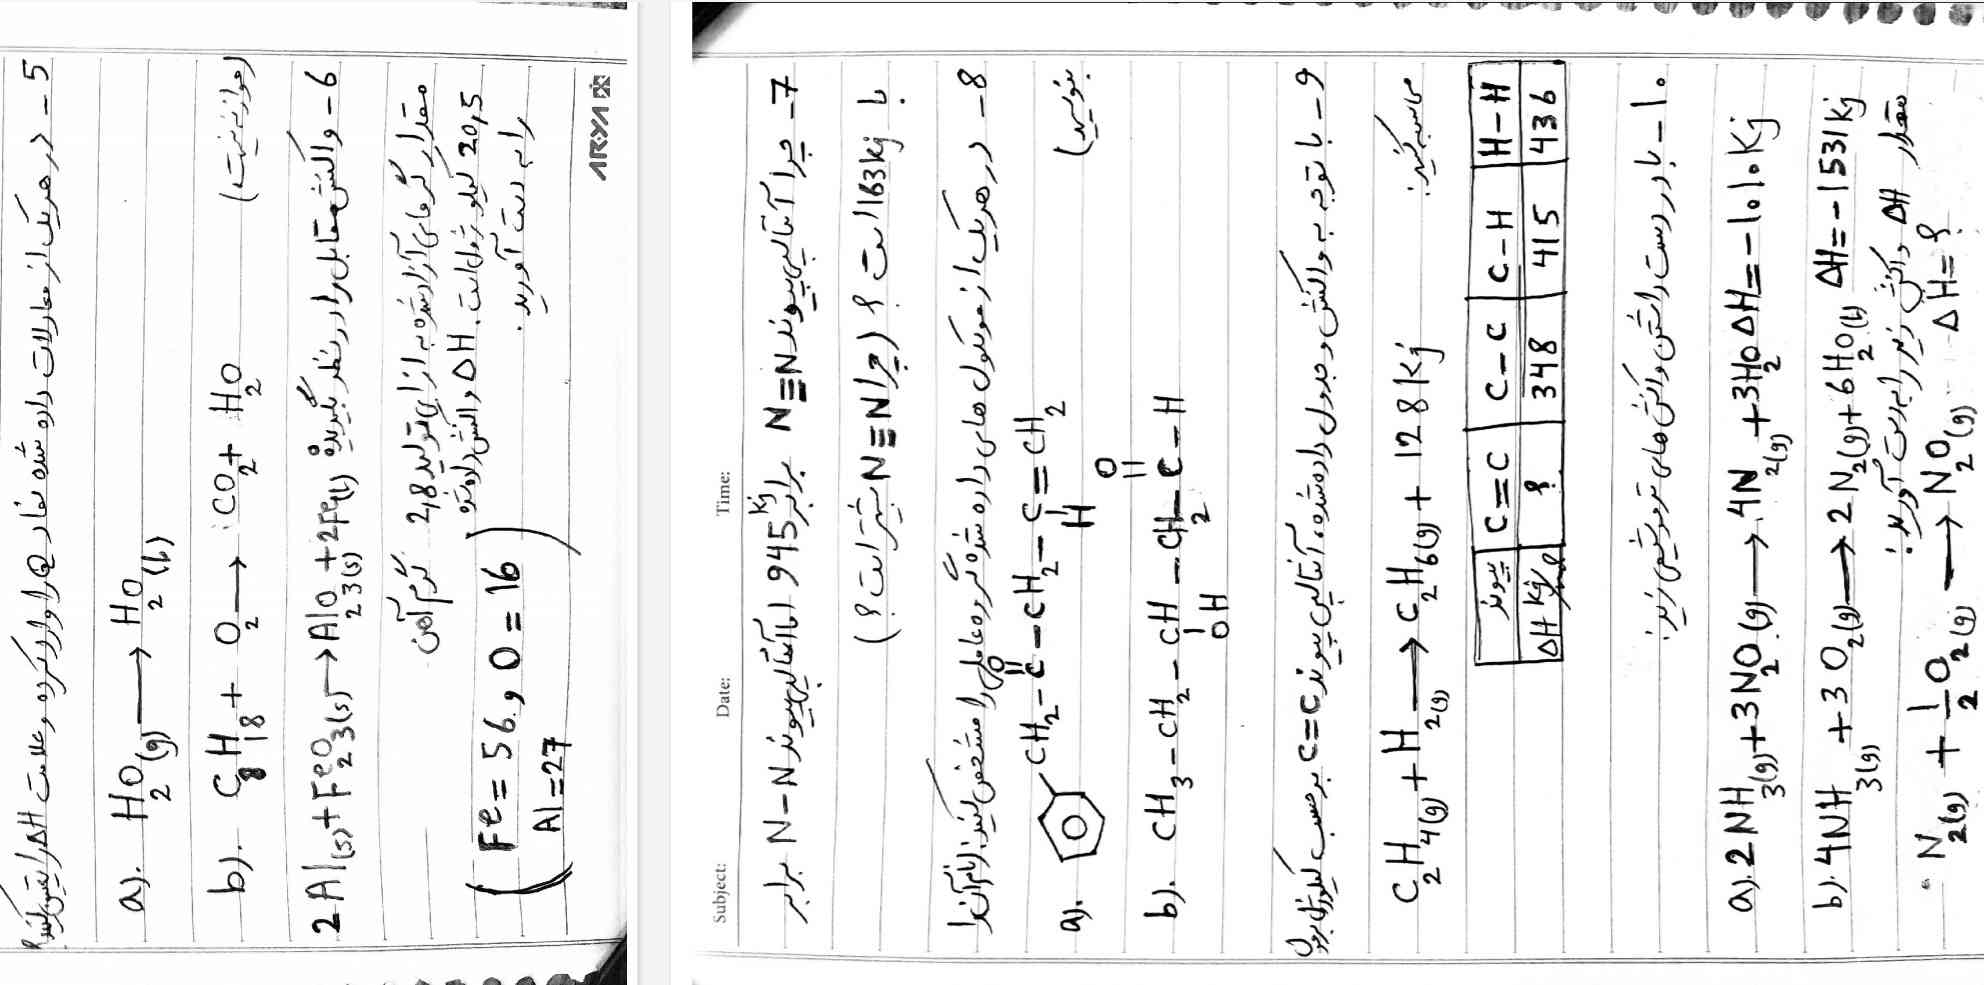 5 - در هریک از معادلات داده شده نماد Q را وارد کرده و علامت ΔH را تعیین کنید؟ (موازنه نیست)
a). H2O(g) → H2O(l)
b). C8H18 + O2 → CO2 + H2O
6 - واکنش مقابل را در نظر بگیرید:
2Al(s) + Fe2O3(s) → Al2O3(s) + 2Fe(l)
مقدار گرمای آزاد شده به ازای تولید 2,8 گرم آهن
20,5 کیلوژول است. ΔH واکنش
را به دست آورید.
(Fe = 56, O = 16
Al = 27)
ARYA
Subject: Date: Time:
7 - چرا آنتالپی پیوند N≡N برابر 945 kj اما آنتالپی پیوند N-N برابر
با 163 kj است؟ (چرا N≡N بیشتر است؟)
8 - در هریک از مولکول های داده شده گروه عاملی را مشخص کنید. (نام آن را
بنویسید)
a). CH2 - C - CH2 - C = CH2
O H
b). CH3 - CH2 - CH - CH2 - C - H
OH O
9 - با توجه به واکنش و جدول داده شده، آنتالپی پیوند C=C بر حسب کیلوژول بر مول
محاسبه کنید:
C2H4(g) + H2(g) → C2H6(g) + 128 Kj
پیوند C=C C-C C-H H-H
ΔH kj/mol ? 348 415 436
10 - با در دست داشتن واکنش های ترموشیمی زیر:
a). 2NH3(g) + 3N2O(g) → 4N2(g) + 3H2O ΔH = -1010 Kj
b). 4NH3(g) + 3O2(g) → 2N2(g) + 6H2O(l) ΔH = -1531 kj
مقدار ΔH واکنش زیر را بدست آورید:
N2(g) + 1/2 O2(g) → N2O(g) ΔH = ?